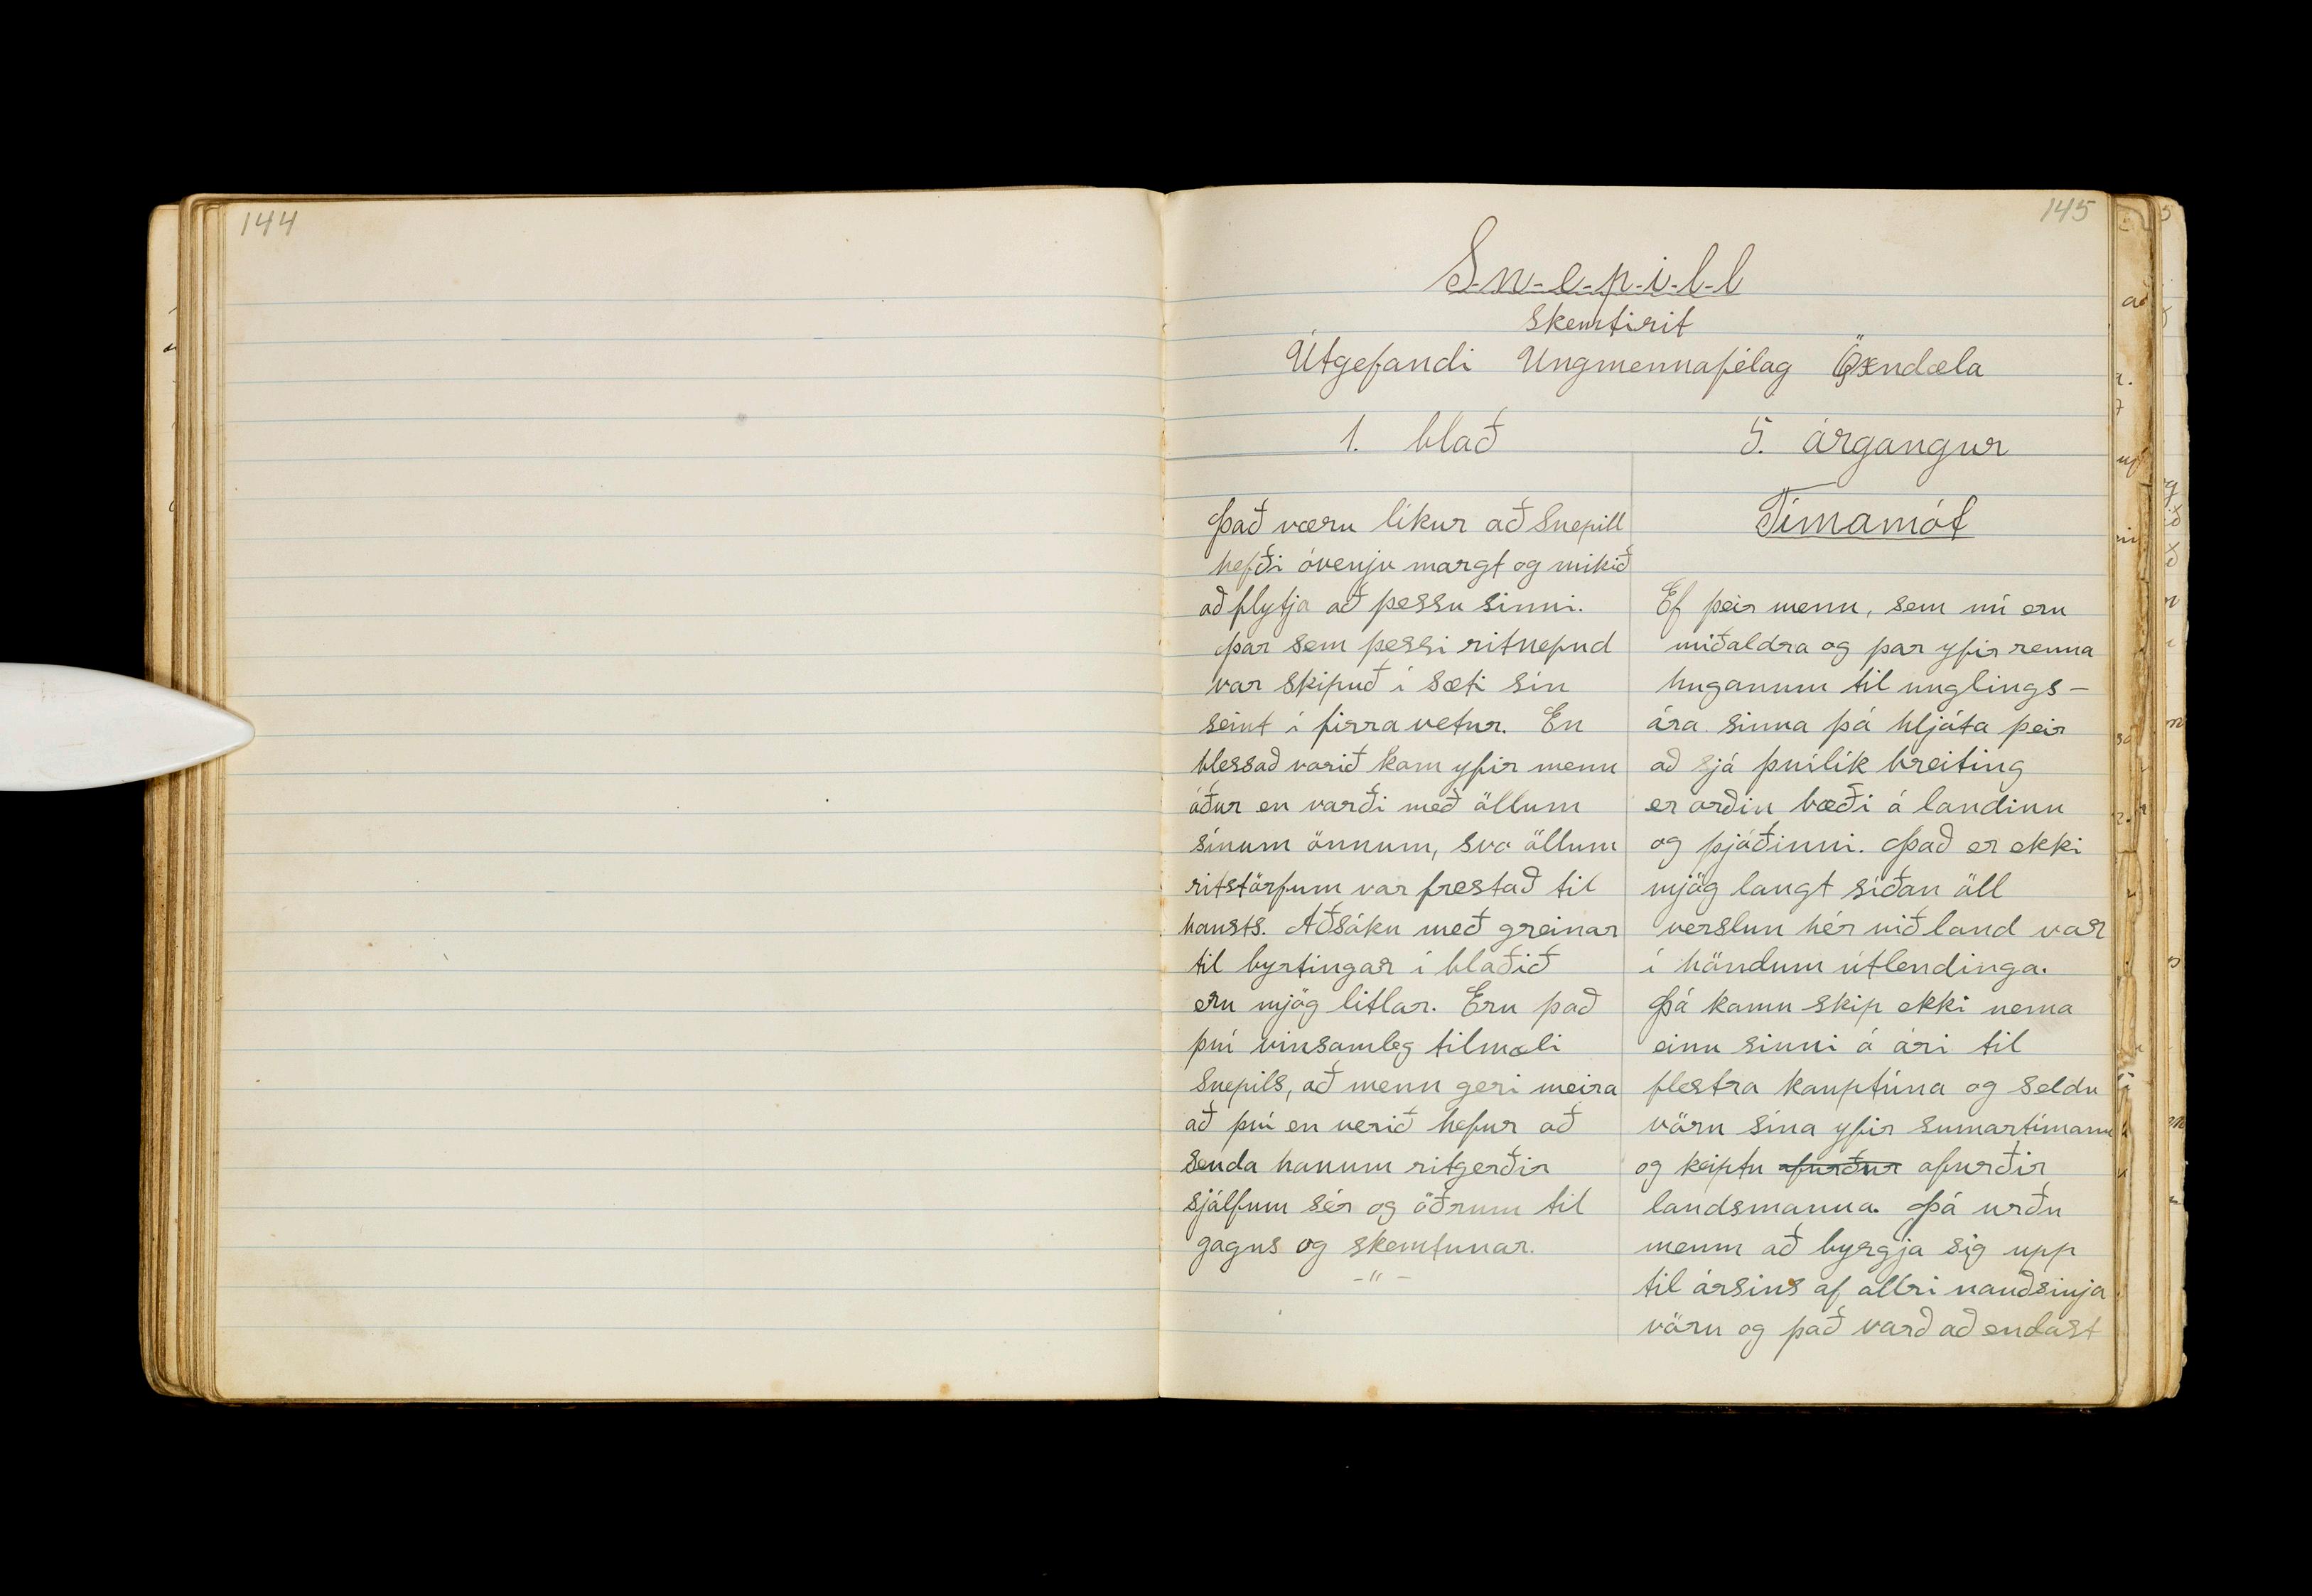 144
145
S-n-e-p-i-l-l
Skemtirit
Útgefandi Ungmennafélag Öxndæla
1. blað
5. árgangur
Það væru líkur að Snepill
hefði óvenju margt og mikið
að flytja að þessu sinni.
þar sem þessi ritnefnd
var skipuð í sæti sín
seint í firra vetur. En
blessað vorið kom yfir menn
áður en varði með öllum
sínum önnum, svo öllum
ritstörfum var frestað til
hausts. Aðsóku með greinar
til byrtingar í blaðið
eru mjög litlar. Eru það
því vinsamleg tilmæli
Snepils, að menn geri meira
að því en verið hefur að
senda honum ritgerðir
sjálfum sér og öðrum til
gagns og skemtunar.
-"-
Tímamót
Ef þeir menn, sem nú eru
miðaldra og þar yfir renna
huganum til unglings-
ára sinna þá hljóta þeir
að sjá þvílík breiting
er orðin bæði á landinu
og þjóðinni. Það er ekki
mjög langt síðan öll
verslun hér við land var
í höndum útlendinga.
Þá komu skip ekki nema
einu sinni á ári til
flestra kauptúna og seldu
vöru sína yfir sumartímann
og keiptu afurður afurðir
landsmanna. Þá urðu
menn að byrgja sig upp
til ársins af allri nauðsinja
vöru og það varð að endast